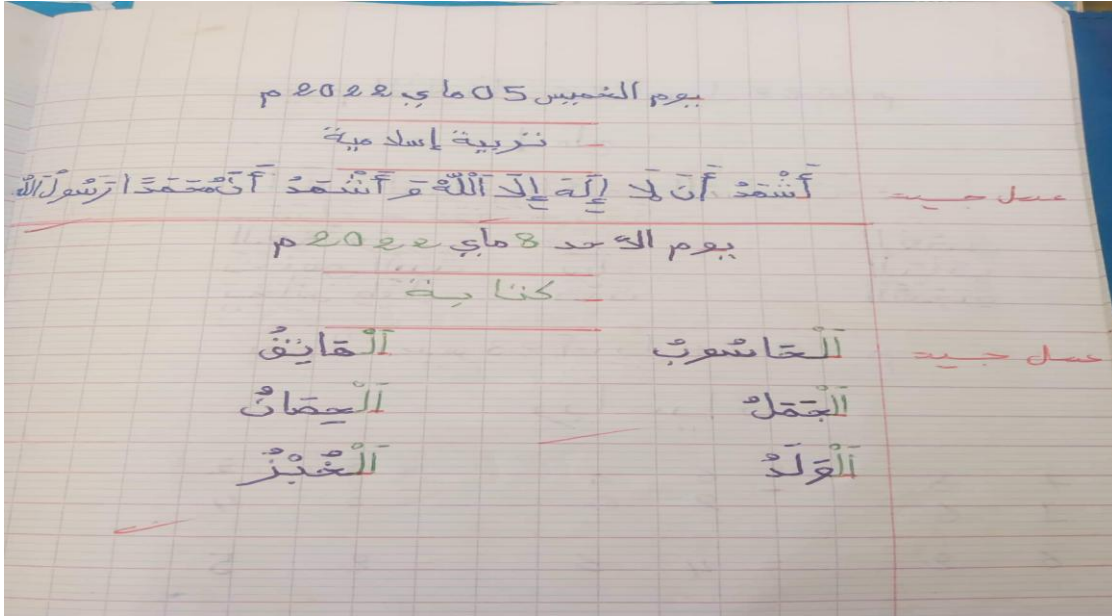 يوم الخميس 05 ماي 2022 م
تربية إسلامية
عمل جيد
أَشْهَدُ أَنْ لَا إِلَهَ إِلَّا اَللَّهُ وَ أَشْهَدُ أَنَّ مُحَمَّدًا رَسُولُ اَللَّه
يوم الأحد 8 ماي 2022 م
كتابة
عمل جيد
اَلْحَاسُوبُ اَلْهَاتِفُ
اَلْجَمَلُ اَلْحِصَانُ
اَلْوَلَدُ اَلْخُبْزُ